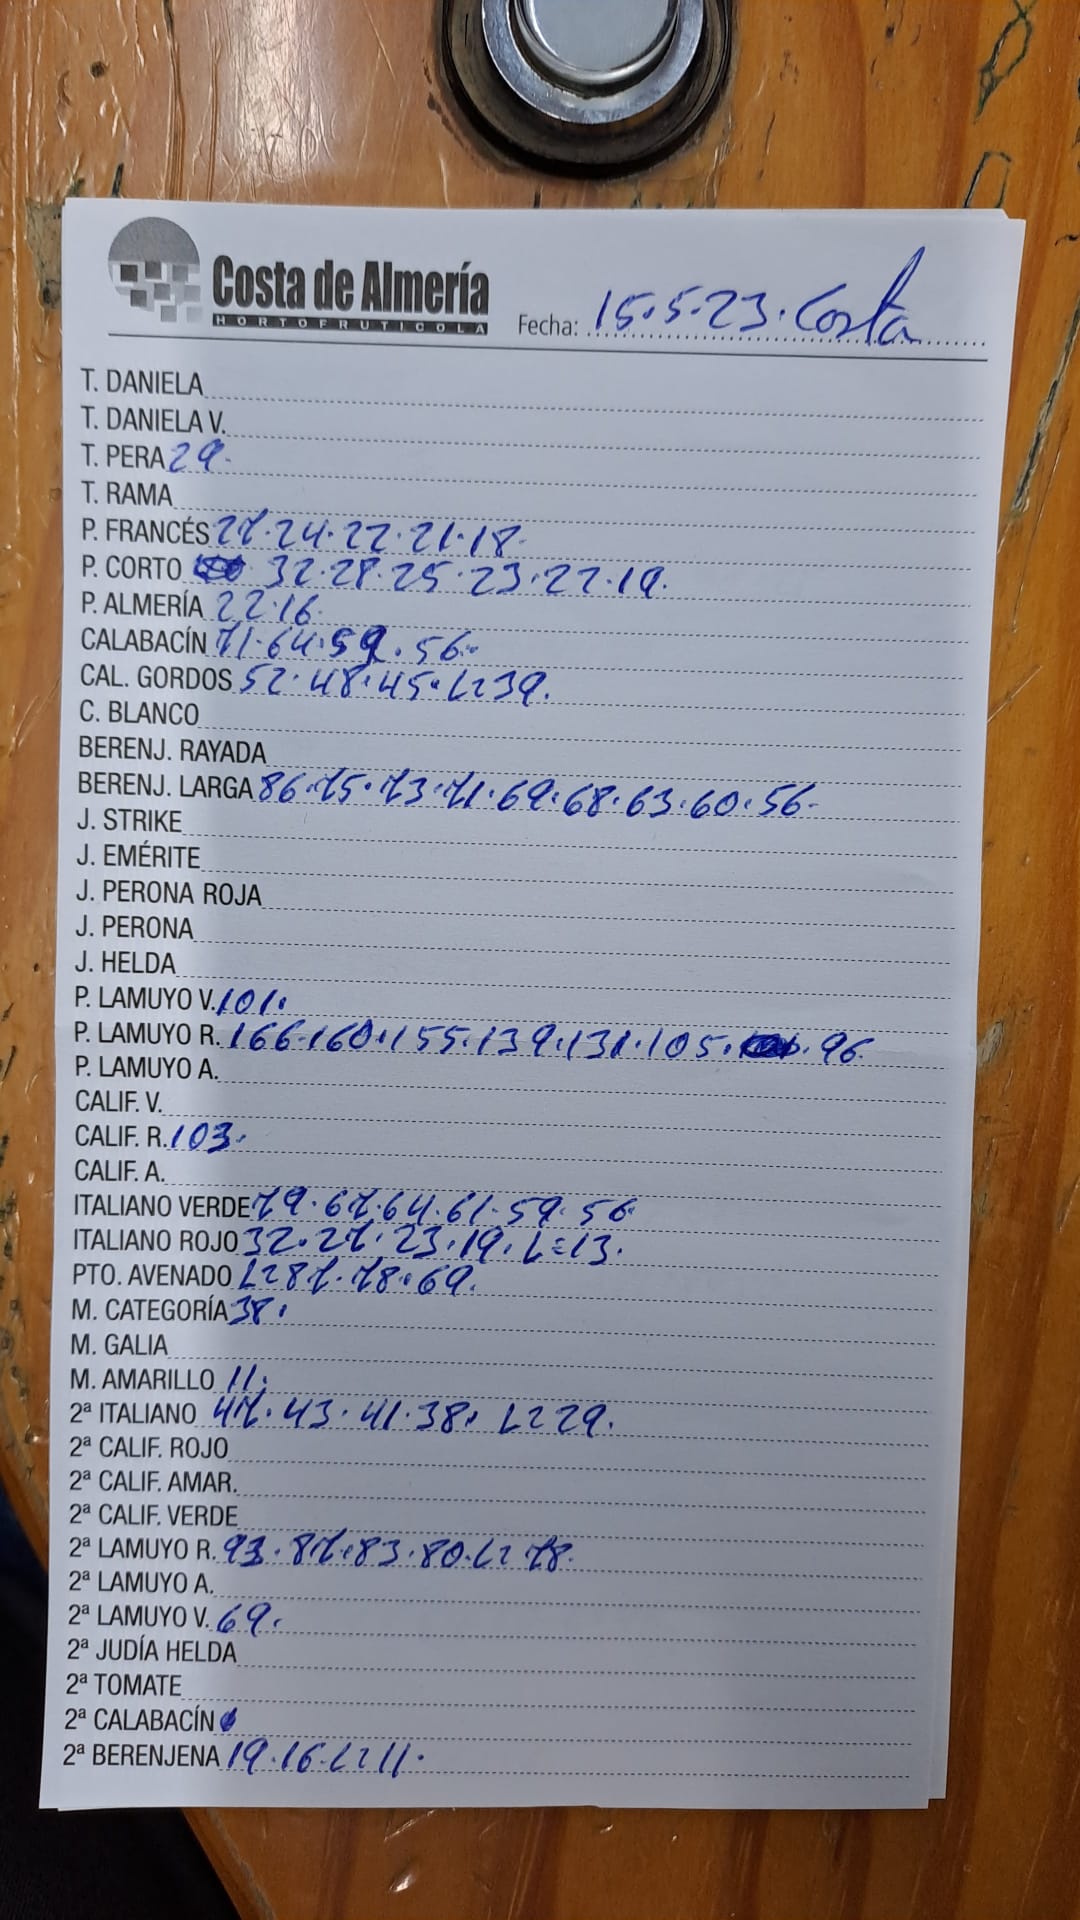 Costa de Almería
HORTOFRUTICOLA
Fecha: 15.5.23. Costa
T. DANIELA
T. DANIELA V.
T. PERA 29.
T. RAMA
P. FRANCÉS 27.24.22.21.18.
P. CORTO 32.28.25.23.22.19.
P. ALMERÍA 22.16.
CALABACÍN 71.64.59.56.
CAL. GORDOS 52.48.45.L=39.
C. BLANCO
BERENJ. RAYADA
BERENJ. LARGA 86.75.73.71.69.68.63.60.56.
J. STRIKE
J. EMÉRITE
J. PERONA ROJA
J. PERONA
J. HELDA
P. LAMUYO V. 101.
P. LAMUYO R. 166.160.155.139.131.105. 96.
P. LAMUYO A.
CALIF. V.
CALIF. R. 103.
CALIF. A.
ITALIANO VERDE 79.67.64.61.59.56
ITALIANO ROJO 32.27.23.19.L=13.
PTO. AVENADO L=87.78.69.
M. CATEGORÍA 38.
M. GALIA
M. AMARILLO 11.
2ª ITALIANO 47.43.41.38. L=29.
2ª CALIF. ROJO
2ª CALIF. AMAR.
2ª CALIF. VERDE
2ª LAMUYO R. 93.87.83.80.L=78.
2ª LAMUYO A.
2ª LAMUYO V. 69.
2ª JUDÍA HELDA
2ª TOMATE
2ª CALABACÍN
2ª BERENJENA 19.16.L=11.